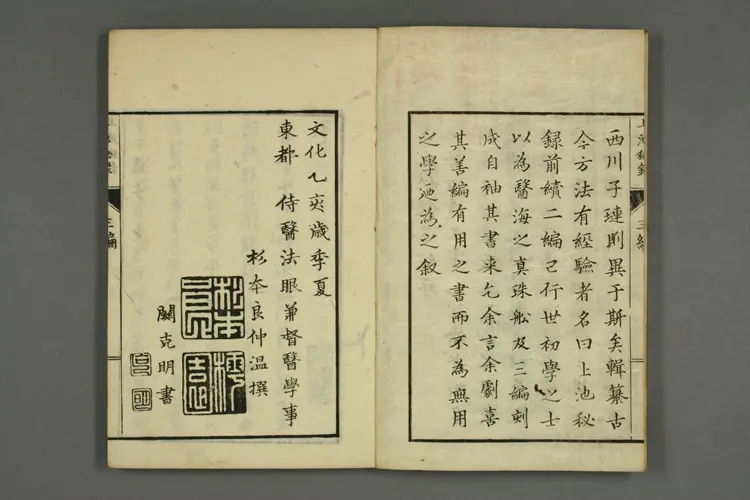 西川子璉則異于斯矣輯纂古
今方法有經驗者名曰上池秘
録前續二編已行世初學之士
以為醫海之真珠船及三編刻
成自袖其書来乞余言余劇喜
其善編有用之書而不為無用
之學迺為之叙
三編
文化乙亥歳季夏
東都 侍醫法眼兼督醫學事
杉本良仲温撰
關克明書
三編